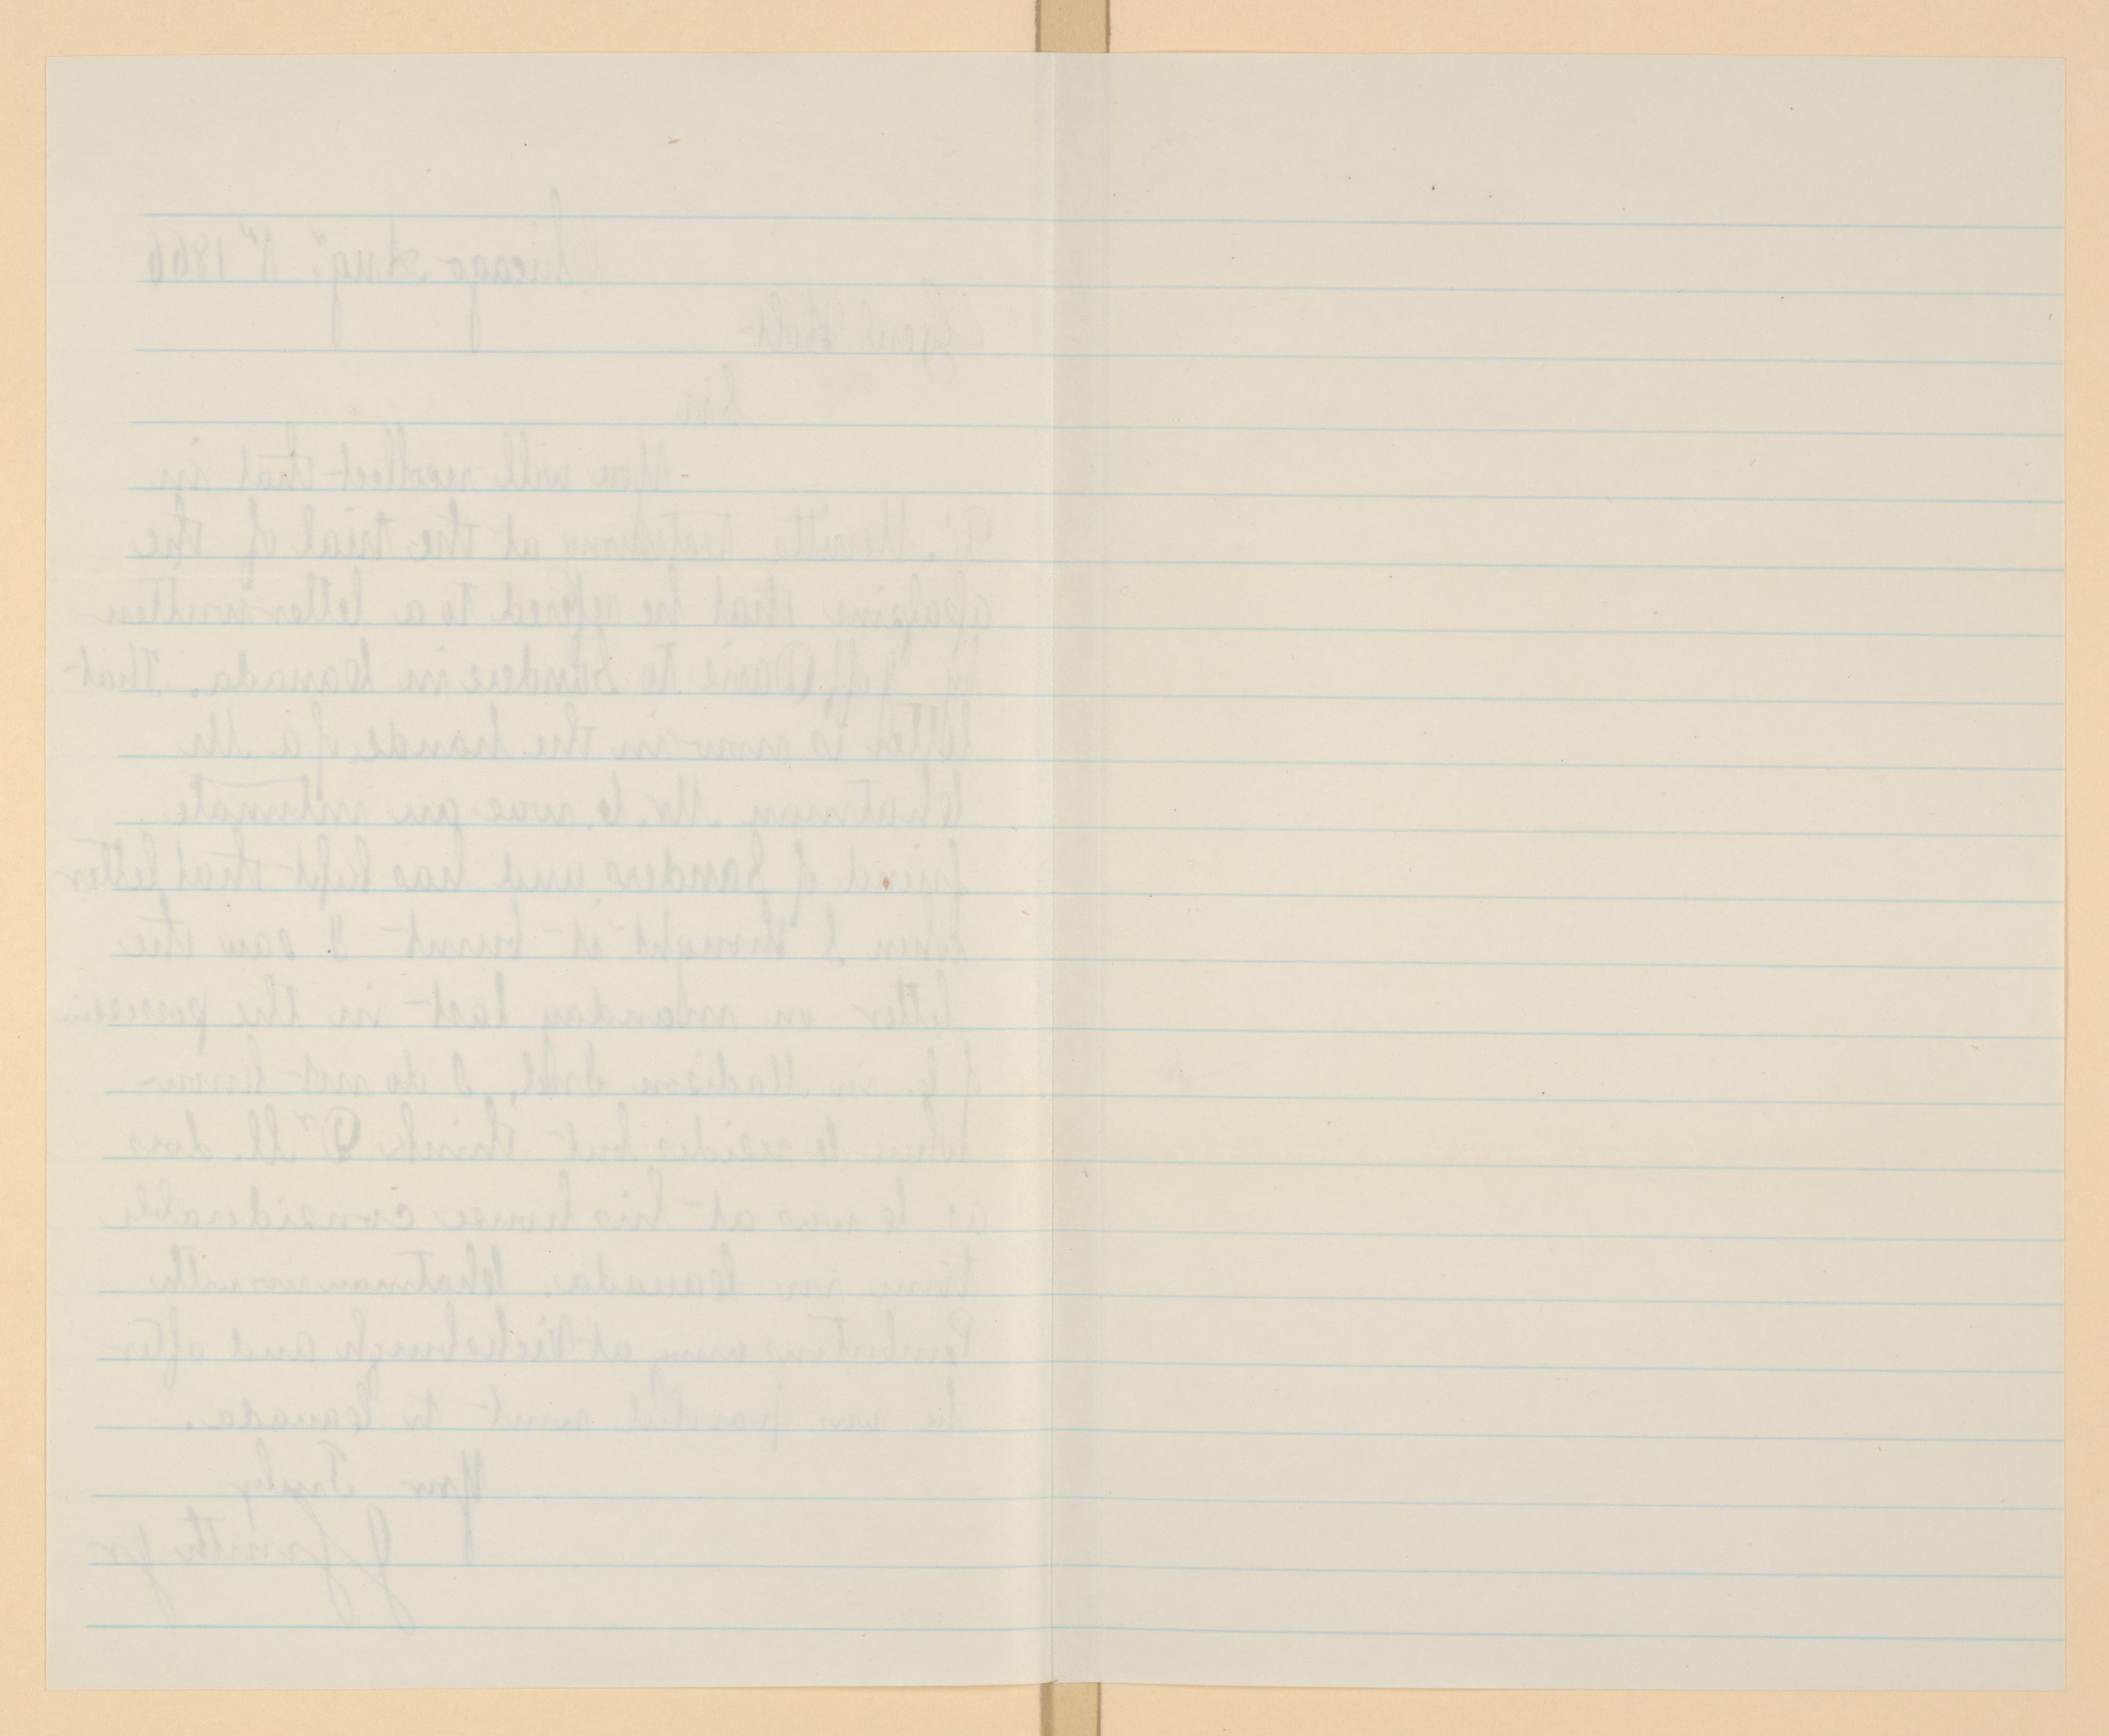 Chicago Aug. 1866
Genl Holt
Sir
You will recollect that in
Dr. Merritts testimony at the trial of the
that he refered to a letter written
by Jeff Davis to Sanders in Canada. That
letter is now in the hands of a Mr
Chatman Mr. C. was an intimate
friend of Sanders and has kept that letter
when I thought it burnt I saw the
letter on monday last in the
of C. in Madison Ind, I do not know
where C resides but think Dr M. does
as C was at his house considerable
time in Canada. Chatman was with
Pembertons army at Vicksburgh and after
he was paroled went to Canada.
Your Truly
J Smith Jr